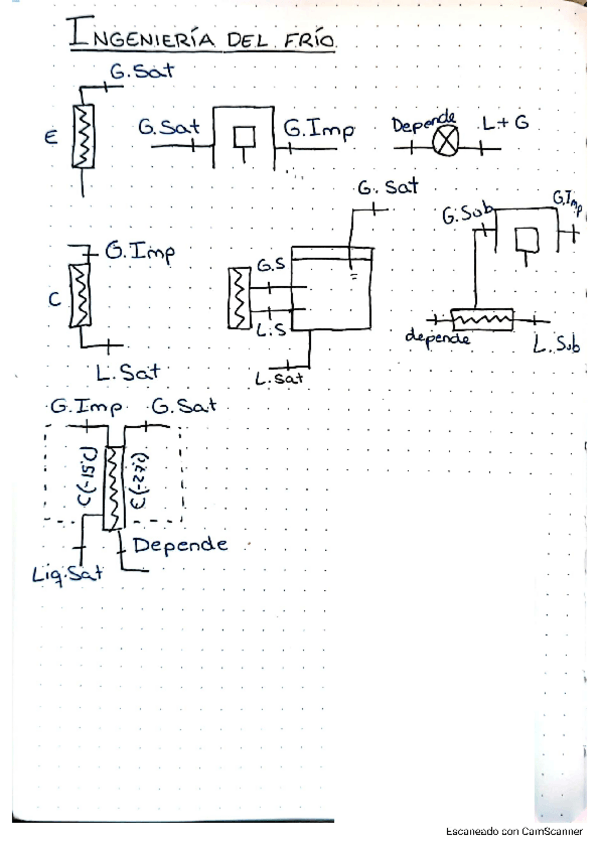 INGENIERÍA DEL FRÍO
G.Sat
E
G.Sat
G.Imp
Depende
L+G
G. Sat
G.Sub
G.Imp
G.Imp
C
L.Sat
G.S
L.S
L.Sat
depende
L.Sub
G.Imp
G.Sat
C(-15°C)
E(-27°C)
Depende
Liq.Sat
Escaneado con CamScanner